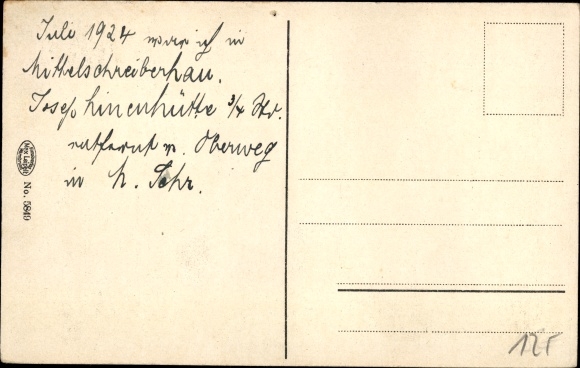 Juli 1924 war ich in
Mittelschreiberhau.
Josephinenhütte ¾ Std.
entfernt v. Oberweg
in M. Schr.
No. 5849
125